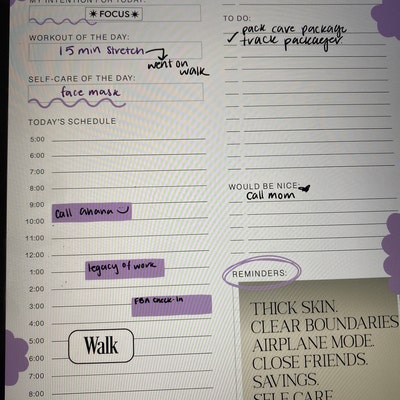 MY INTENTION FOR TODAY:
FOCUS
WORKOUT OF THE DAY:
15 min stretch
went on
walk
SELF-CARE OF THE DAY:
face mask
TODAY'S SCHEDULE
5:00
6:00
7:00
8:00
9:00
call ahana
10:00
11:00
12:00
legacy of work
1:00
2:00
3:00
FBA check-in
4:00
5:00
Walk
6:00
7:00
8:00
TO DO:
pack care package
track packages
WOULD BE NICE:
call mom
REMINDERS:
THICK SKIN.
CLEAR BOUNDARIES
AIRPLANE MODE.
CLOSE FRIENDS.
SAVINGS.
SELF CARE